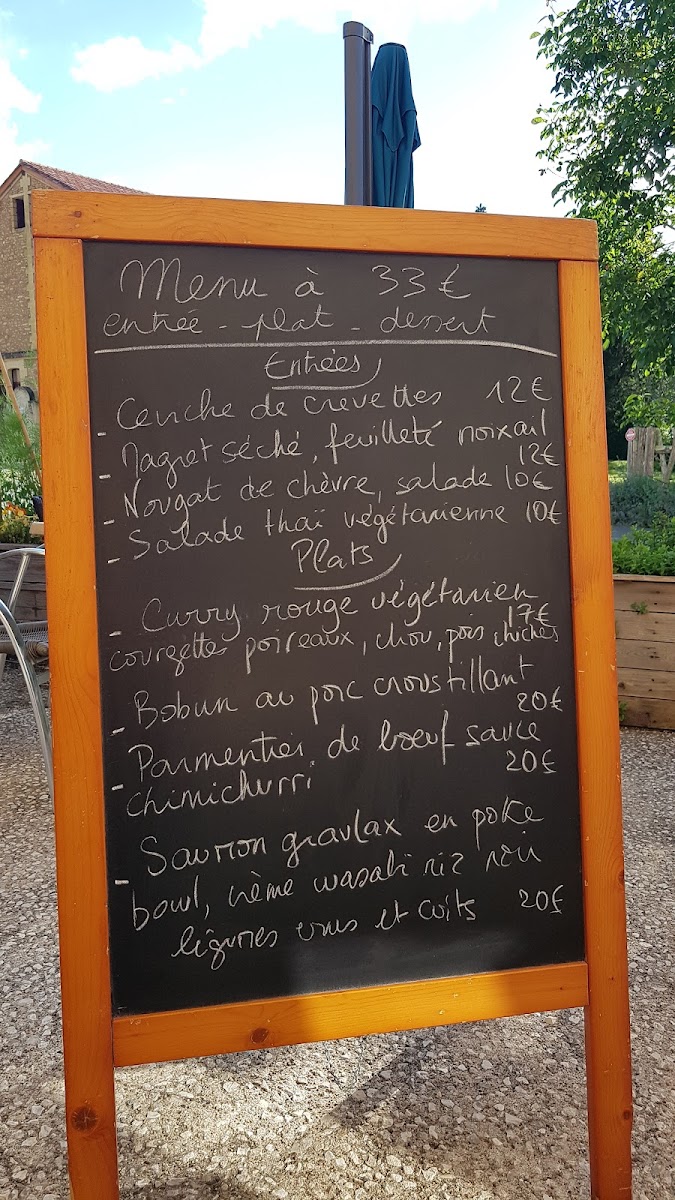 Menu à 33€
entrée - plat - dessert
Entrées
- Ceviche de crevettes 12€
- Magret séché, feuilleté noix ail
12€
- Nougat de chèvre, salade 10€
- Salade thaï végétarienne 10€
Plats
- Curry rouge végétarien
17€
courgettes poireaux, chou, pois chiches
- Bobun au porc croustillant
20€
- Parmentier de boeuf sauce
chimichurri 20€
- Saumon gravlax en poke
bowl, crème wasabi riz noir
légumes crus et cuits 20€